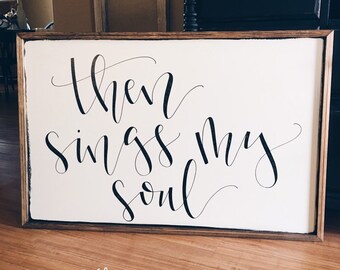 then
sings my
soul